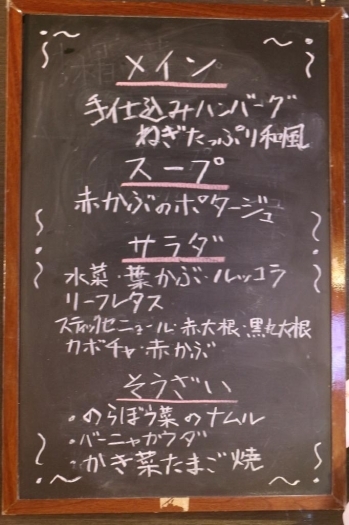 メイン
手仕込みハンバーグ
ねぎたっぷり和風
スープ
赤かぶのポタージュ
サラダ
水菜・葉かぶ・ルッコラ
リーフレタス
スティックセニョール・赤大根・黒丸大根
カボチャ・赤かぶ
そうざい
・のらぼう菜のナムル
・バーニャカウダ
・かき菜たまご焼